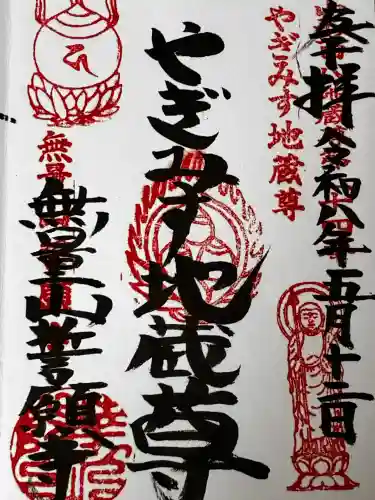 奉拝 令和八年五月十二日
やぎみす地蔵尊
やぎみす地蔵尊
無量山誓願寺
無量